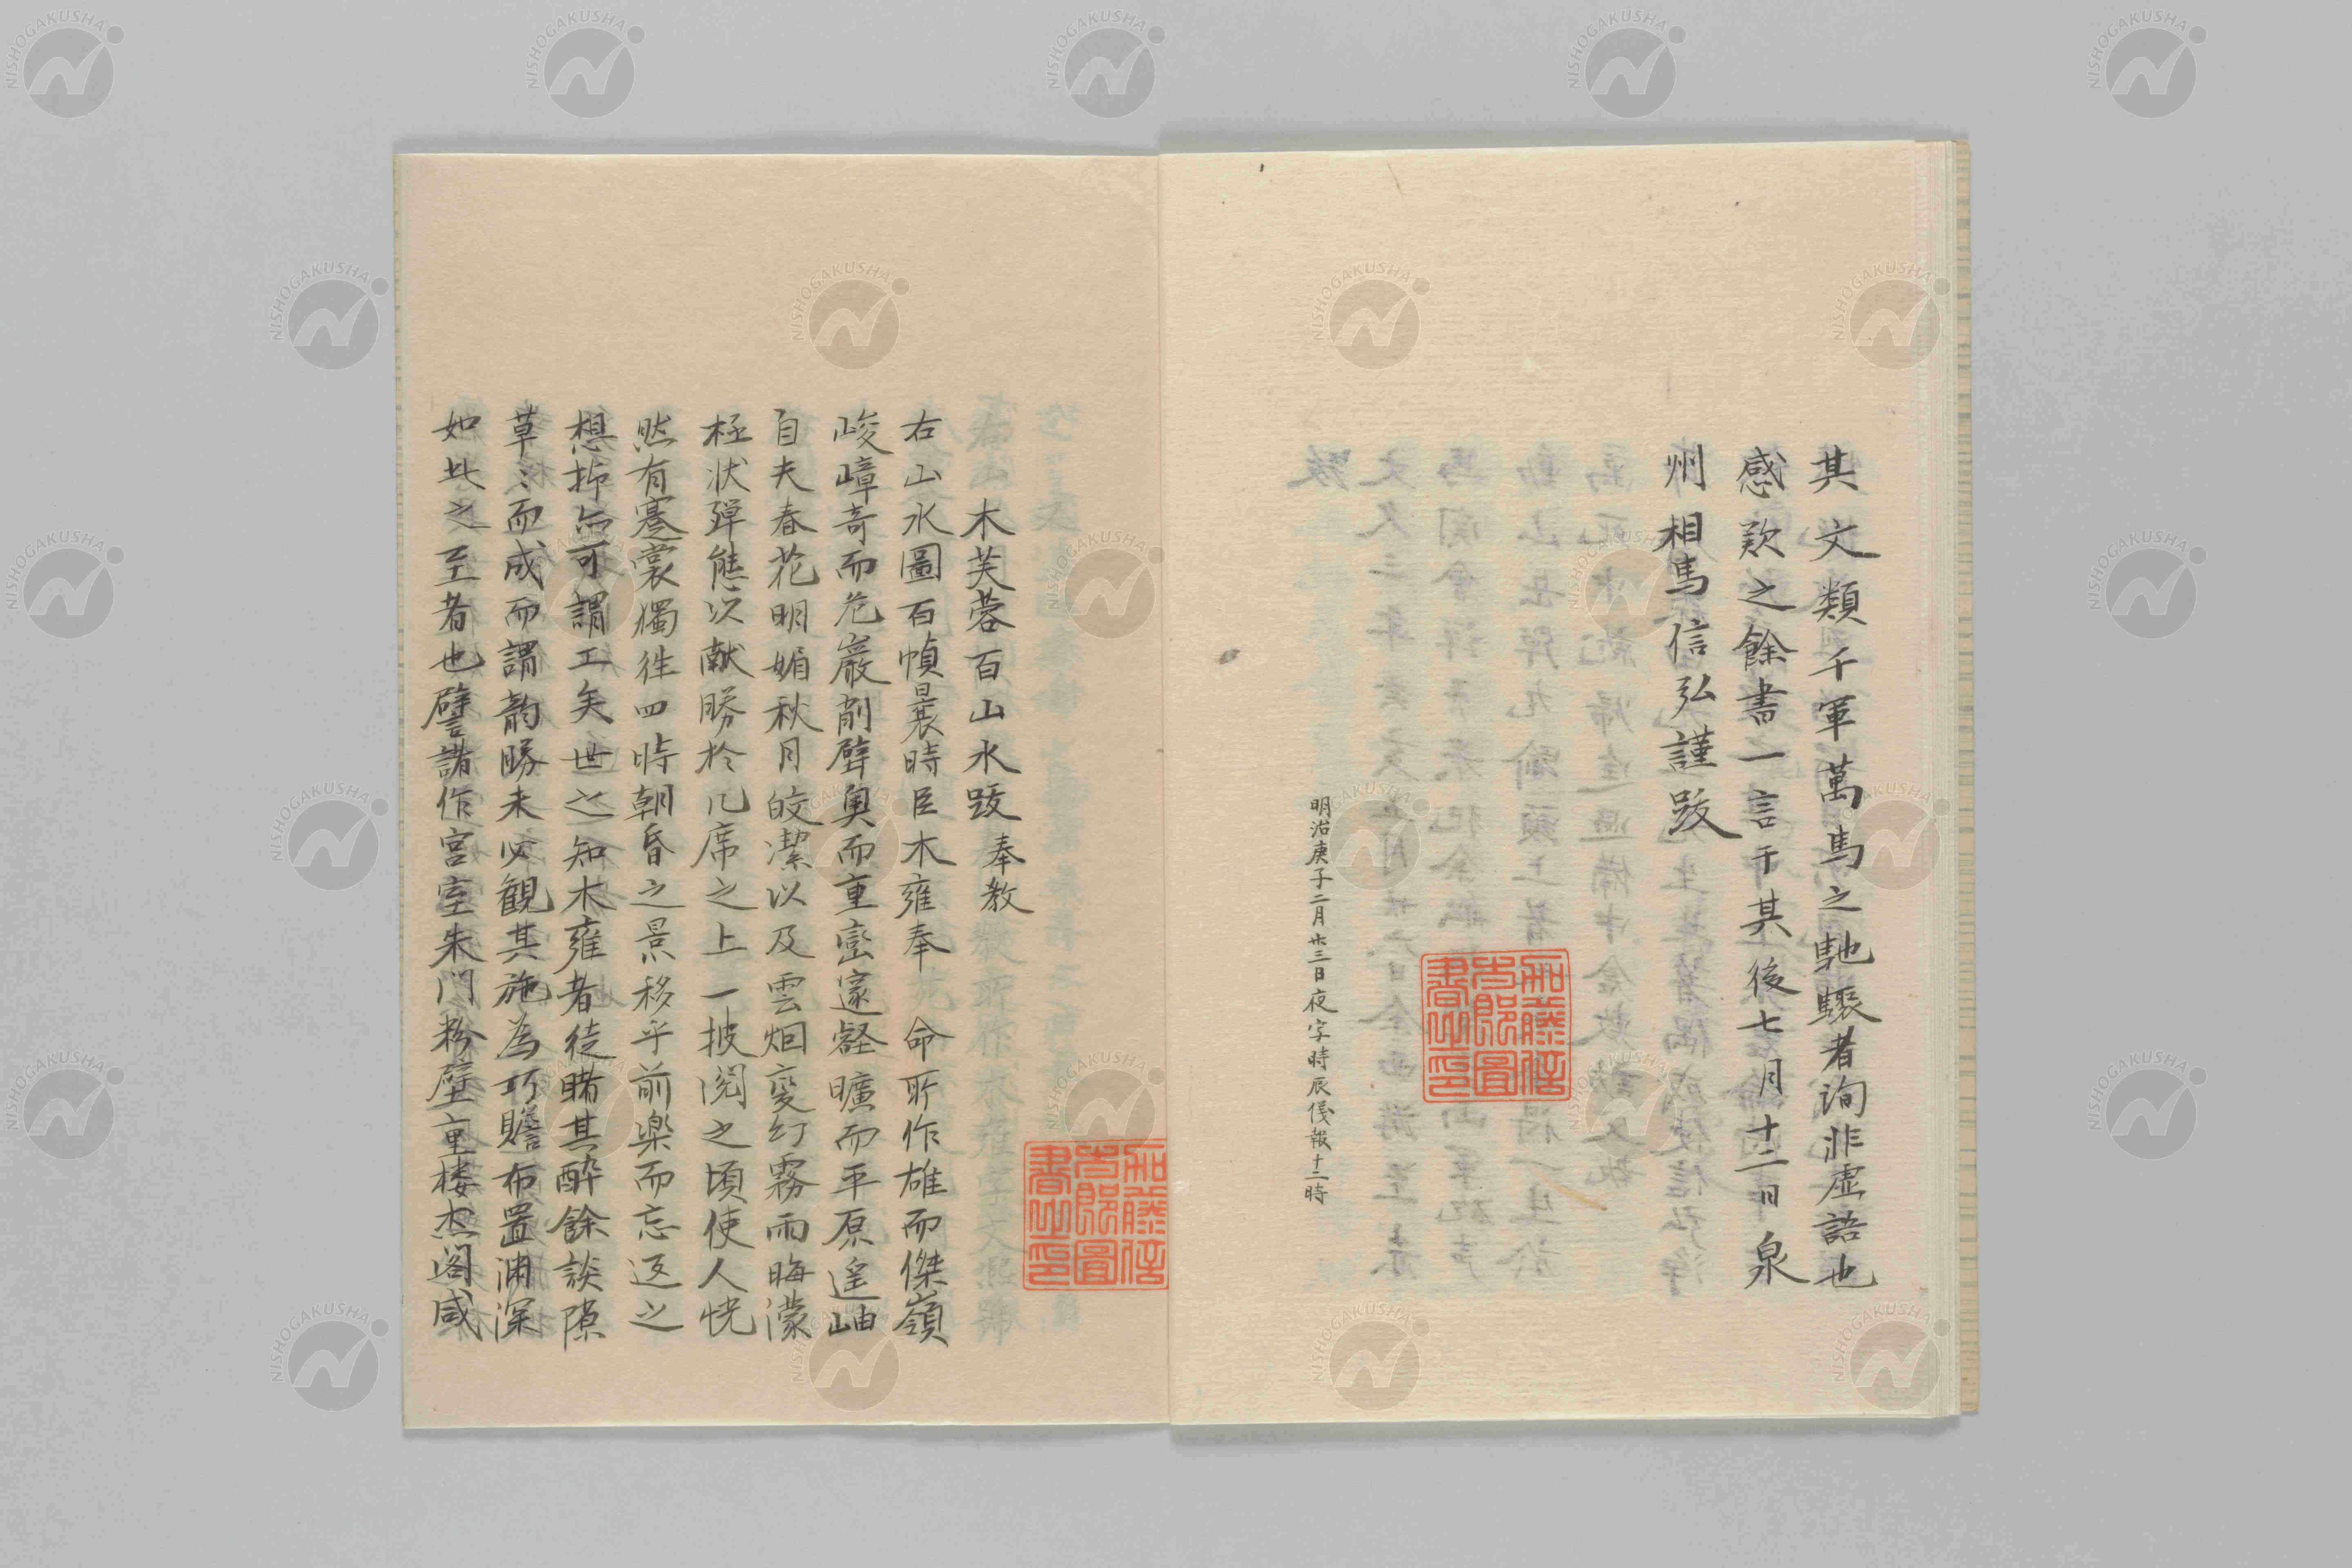 其文類千軍萬馬之馳驟者洵非虛語也
感歎之餘書一言于其後七月十二日泉
州相馬信弘謹跋
明治庚子二月廿三日夜字時辰儀報十二時
木芙蓉百山水跋奉教
右山水圖百幀曩時臣木雍奉 命所作雄而傑嶺
峻嶂奇而危巖削壁奧而重巒邃壑曠而平原遙岫
自夫春花明媚秋月皎潔以及雲烟変幻霧雨晦濛
極状殫態以献勝於几席之上一披閲之頃使人恍
然有蹇裳獨徃四時朝昏之景移乎前楽而忘返之
想抑亦可謂工矣世之知木雍者徒睹其酔餘談隙
草々而成而謂韵勝未必観其施為巧贍布置淵深
如此之至者也譬諸作宮室朱門粉壁重楼杰阁咸
加藤信太郎圖書之印
加藤信太郎圖書之印
NISHOGAKUSHA